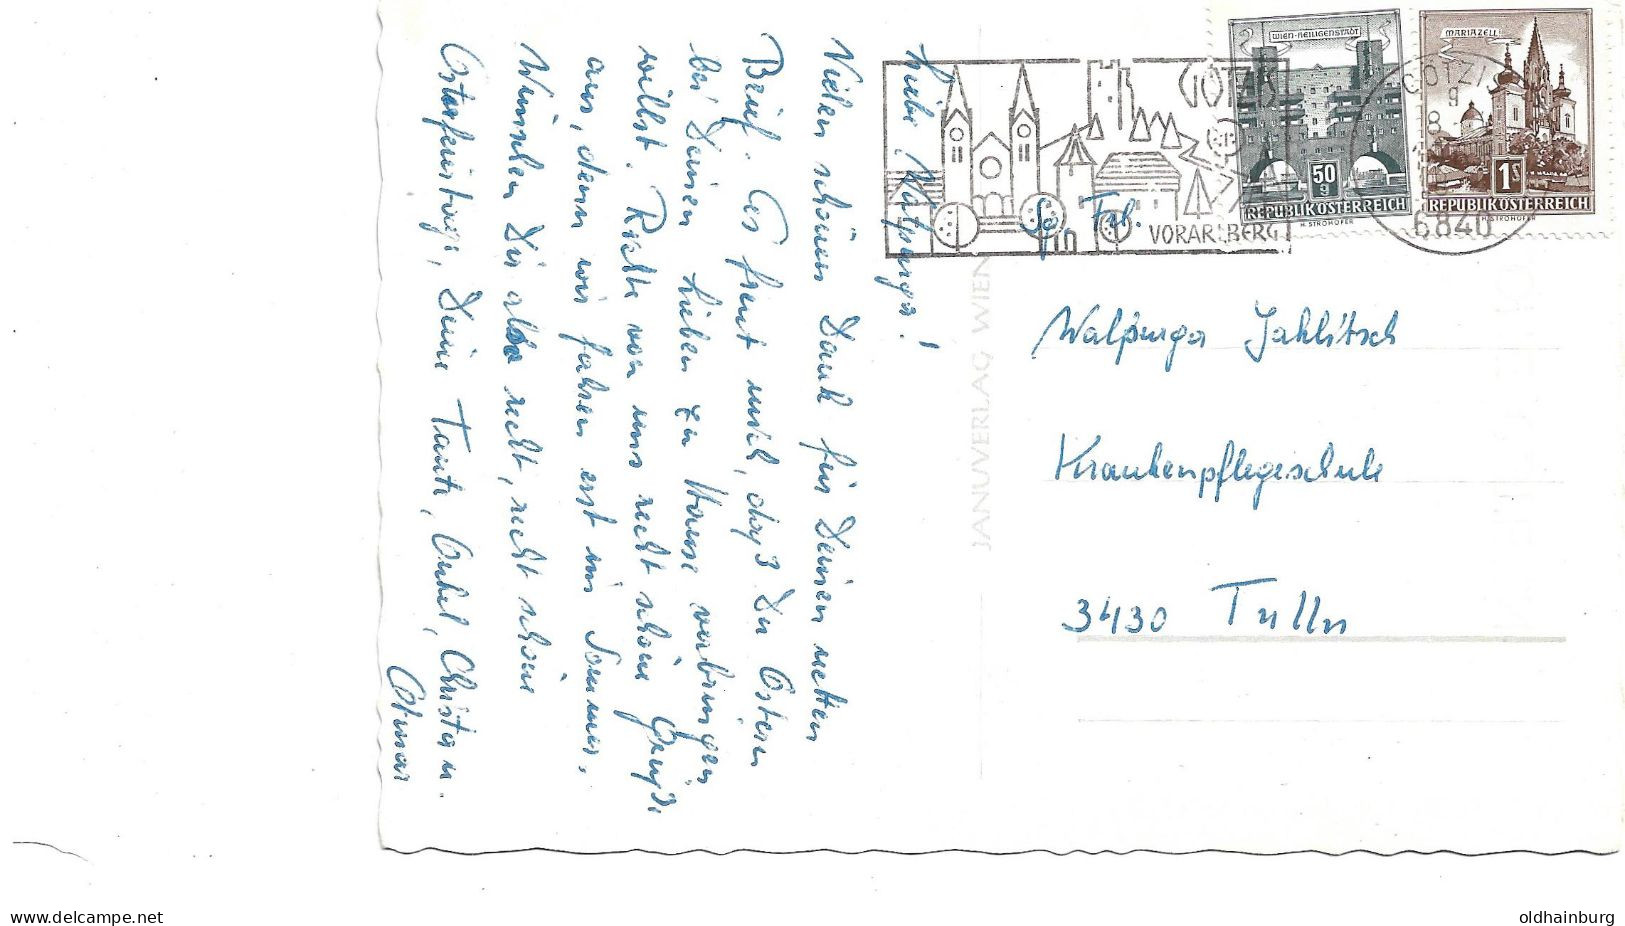 Liebe Walpurga!
Vielen schönen Dank für Deinen netten
Brief. Es freut mich, daß Du Ostern
bei Deinen Lieben zu Hause verbringen
willst. Richte von uns recht schöne Grüße
aus, denn wir fahren erst im Sommer.
Wünschen Dir also recht, recht schöne
Osterfeiertage, Deine Tante, Onkel, Christa u.
Otmar
WIEN-HEILIGENSTADT
50 g
REPUBLIK ÖSTERREICH
H. STROHOFER
MARIAZELL
1 S
REPUBLIK ÖSTERREICH
H. STROHOFER
GÖTZIS
IN
VORARLBERG
GÖTZIS
6840
JANUVERLAG WIEN
Walpurga Jahlitsch
Krankenpflegeschule
3430 Tulln
www.delcampe.net
oldhainburg